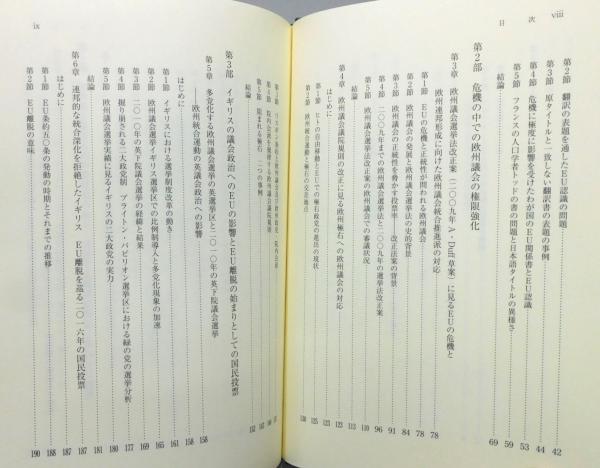 目 次
viii
第2節 翻訳の表題を通したEU認識の問題 42
第3節 原タイトルと一致しない翻訳書の表題の事例 44
第4節 危機に極度に影響を受けたわが国のEU関係書とEU認識 53
第5節 フランスの人口学者トッドの書の問題と日本語タイトルの異様さ 59
結論 69
第2部 危機の中での欧州議会の権限強化
第3章 欧州議会選挙法改正案(二〇〇九年A・Duff草案)に見るEUの危機と
欧州連邦形成に向けた欧州議会統合推進派の対応 78
第1節 EUの危機と正統性が問われる欧州議会 78
第2節 欧州議会の発展と欧州議会選挙法の史的背景 84
第3節 欧州議会の正統性を脅かす投票率――改正法案の背景 91
第4節 二〇〇九年までの欧州議会選挙法と二〇〇九年の選挙法改正案 96
第5節 欧州議会選挙法改正案の欧州議会での審議状況 110
結論 112
第4章 欧州議会議院規則の改正に見る欧州極右への欧州議会の対応 123
はじめに
第1節 ヒトの自由移動とEUでの極右政党の進出の現状 125
第2節 欧州統合運動と極右の交差地点
ix
第5節 阻まれる極右 二つの事例
結論
第3部 イギリスの議会政治へのEUの影響とEU離脱の始まりとしての国民投票
第5章 多党化する欧州議会選挙の英選挙区と二〇一〇年の英下院議会選挙
――欧州統合運動の英議会政治への影響 158
はじめに 158
第1節 イギリスにおける選挙制度改革の動き 161
第2節 欧州議会選挙イギリス選挙区での比例制導入と多党化現象の加速 165
第3節 二〇一〇年の英下院議会選挙の経緯と結果 169
第4節 掘り崩される二大政党制 ブライトン・パビリオン選挙区における緑の党の選挙分析 177
第5節 欧州議会選挙実績に見るイギリスの二大政党の実力 180
結論 181
第6章 連邦的な統合深化を拒絶したイギリス EU離脱を巡る二〇一六年の国民投票 187
はじめに 187
第1節 EU条約五〇条の発動の時期とそれまでの推移 188
第2節 EU離脱の意味 190